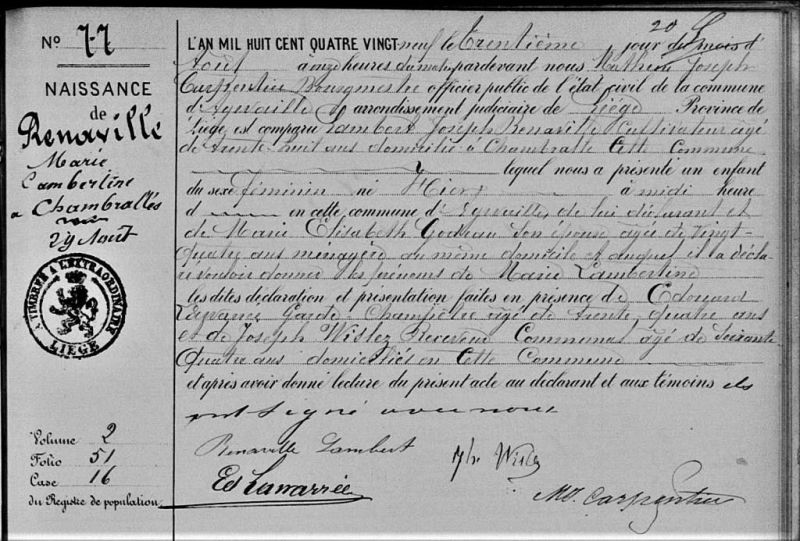 N° 77
NAISSANCE
de
Renaville
Marie
Lambertine
a Chambralles
29 Aout
TIMBRES A L'EXTRAORDINAIRE
LIÈGE
Volume 2
Folio 51
Case 16
du Registe de population
20
L'AN MIL HUIT CENT QUATRE VINGT neuf le trentième jour du mois d'
Août à onze heures du matin pardevant nous Mathieu Joseph
Carpentier Bourgmestre officier public de l'état civil de la commune
d'Aywaille arrondissement judiciaire de Liége Province de
Liége, est comparu Lambert Joseph Renaville Cultivateur agé
de trente-huit ans domicilié à Chambralle Cette Commune
lequel nous a présenté un enfant
du sexe féminin né Hier à midi heure
d en cette commune d'Aywaille, de lui déclarant et
de Marie Elisabeth Godeau son épouse agée de vingt-
quatre ans ménagère au même domicile et auquel il a décla-
ré vouloir donner les prénoms de Marie Lambertine
les dites déclaration et présentation faites en présence de Edouard
Lawarrée Garde Champêtre agé de trente quatre ans
et de Joseph Wislez Receveur Communal agé de Soixante
quatre ans domiciliés en Cette Commune
d'après avoir donné lecture du présent acte au déclarant et aux témoins ils
ont signé avec nous
Renaville Lambert
Jh. Wislez
Ed Lawarrée
Mtt. Carpentier